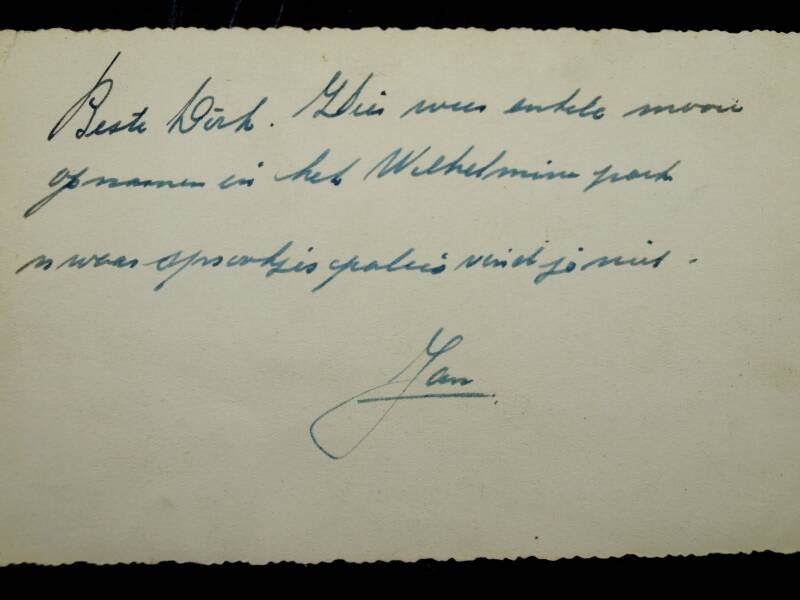 Beste Dirk. Dies wees enkele mooie
opnamen in het Wilhelmina park
n waar sprookjes paleis vind je niet.
Jan